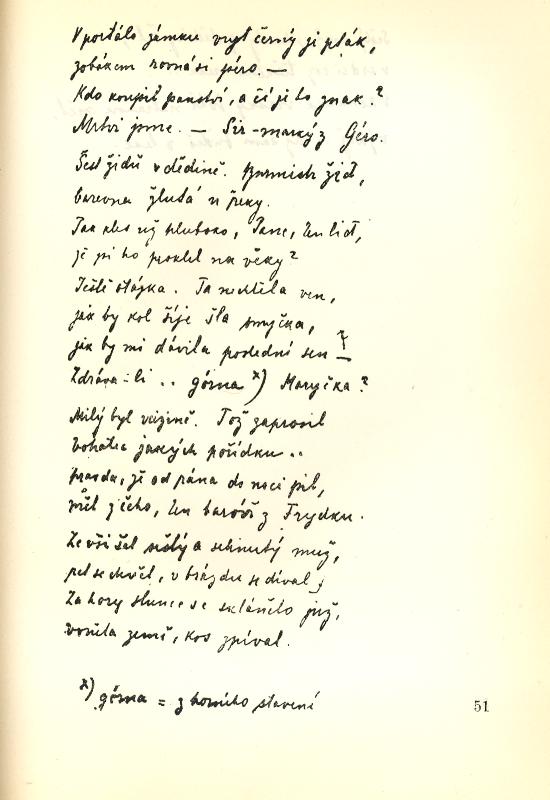 V portále zámku vryt černý je pták,
zobákem rovná si péro. —
Kdo koupil panství, a čí je to znak?
Mrtvi jsme. — Sir-markýz Géro.
Šest židů v dědině. žid,
barevna žlutá u řeky.
Tak nás už hluboko, Pane, ten lid,
je jsi ho proklel na věky?
Ještě otázka. Ta nechtěla ven,
jak by kol šíje šla smyčka,
jak by mi dávila poslední sen —
Zdráva-li .. górna x) Maryčka?
Milý byl vězině. Tož zaprosil
bohatia jakých pořídku ..
pravda, že od rána do noci pil,
měl z čeho, ten baróš z Frydku.
Ze vsi šel sešlý a sehnutý muž,
pes se chvěl, v brázdu se díval;
Za hory slunce se sklánělo již,
voněla země, kos zpíval.
x) górna = z horního stavení
51